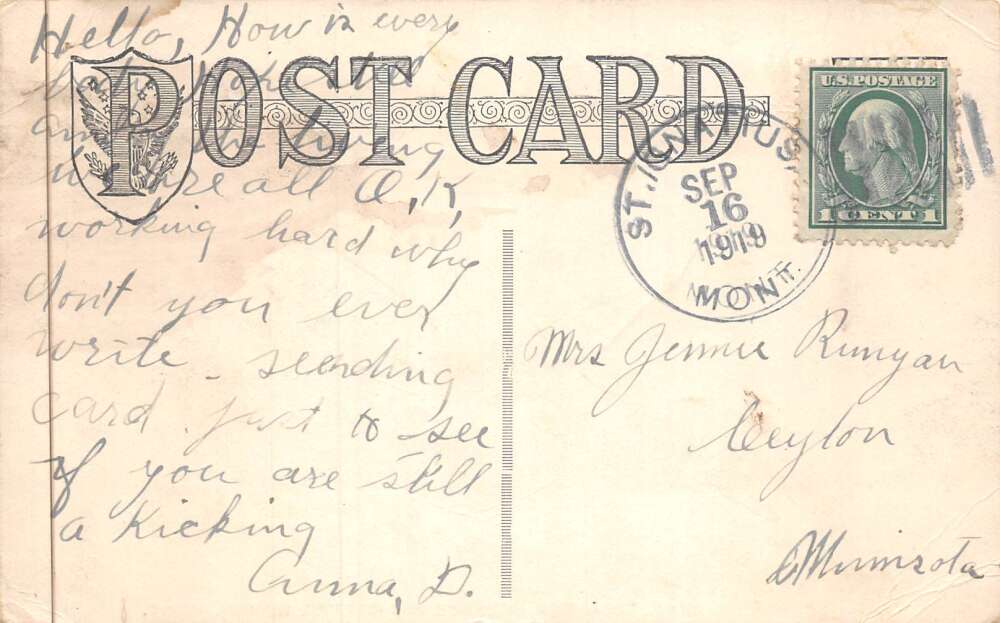 Hello, How is every
body
POST CARD
we are all O,K,
working hard why
don't you ever
write - sending
card just to see
if you are still
a Kicking
Anna, D.
ST. IGNATIUS
SEP
16
1919
MONT.
U.S. POSTAGE
1 CENT 1
Mrs Jennie Runyan
Ceylon
Minnsota